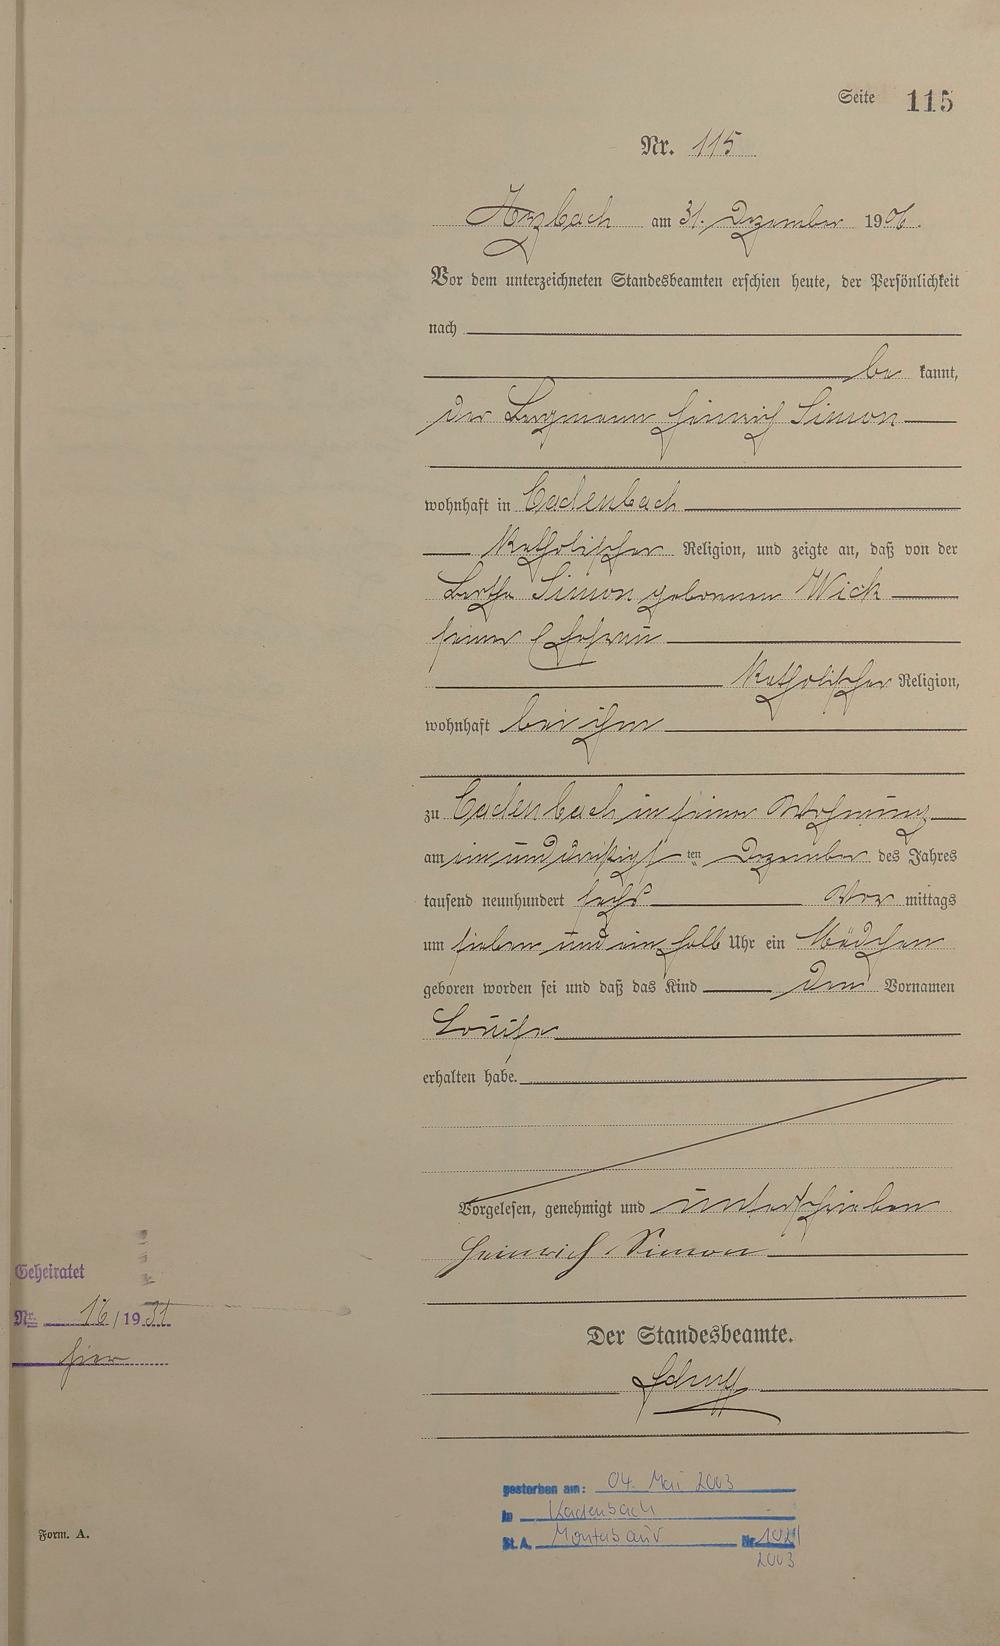 Seite 115
Nr. 115
Arzbach am 31. Dezember 1906.
Vor dem unterzeichneten Standesbeamten erschien heute, der Persönlichkeit
nach
be kannt,
der Bergmann Heinrich Simon
wohnhaft in Cadenbach
katholischer Religion, und zeigte an, daß von der
Bertha Simon geborenen Wick
seiner Ehefrau
katholischer Religion,
wohnhaft bei ihm
zu Cadenbach in seiner Wohnung
am ein und dreißigs ten Dezember des Jahres
tausend neunhundert sechs Vor mittags
um sieben und ein halb Uhr ein Mädchen
geboren worden sei und daß das Kind den Vornamen
Louise
erhalten habe.
Vorgelesen, genehmigt und unterschrieben
Heinrich Simon
Geheiratet
Nr. 16/1931
hier
Der Standesbeamte.
gestorben am: 04. Mai 2003
in Kadenbach
St.A. Montabaur Nr.
2003
Form. A.